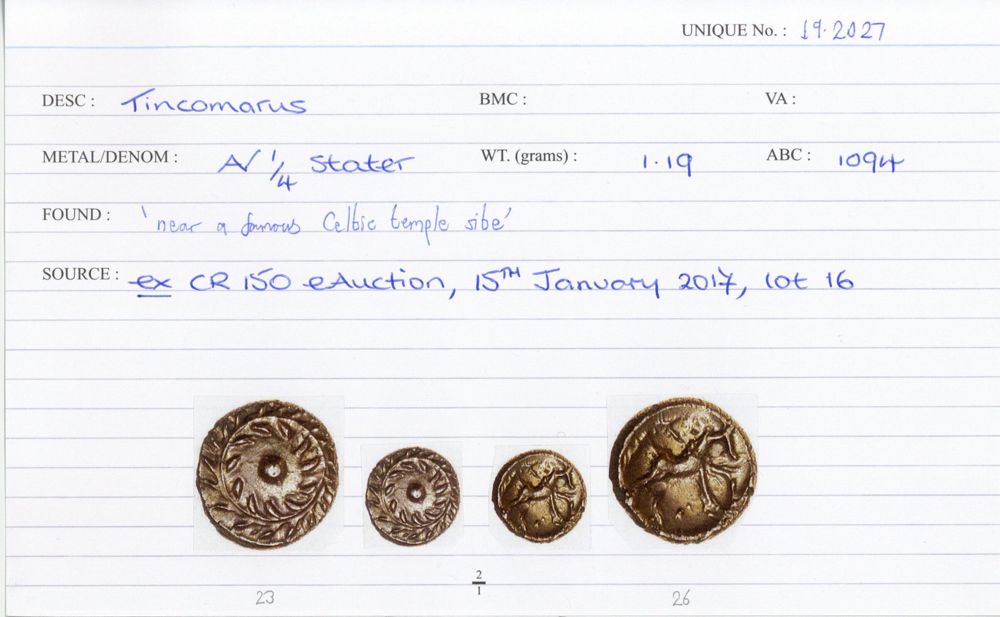 UNIQUE No. : 19.2027
DESC : Tincomarus BMC : VA :
METAL/DENOM : A/ 1/4 Stater WT. (grams) : 1.19 ABC : 1094
FOUND : 'near a famous Celtic temple site'
SOURCE : ex CR 150 eAuction, 15TH January 2017, lot 16
2
1
23 26